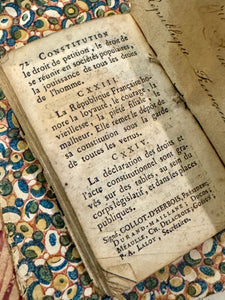 72 CONSTITUTION
le droit de pétition, le droit de
se réunir en sociétés populaires,
la jouissance de tous les droits
de l'homme.
CXXIII.
La République Françoise ho-
nore la loyauté, le courage, la
vieillesse, la piété filiale, le
malheur. Elle remet le dépôt de
sa constitution sous la garde
de toutes les vertus.
CXXIV.
La déclaration des droits et
l'acte constitutionnel sont gra-
vés sur des tables, au sein du
corps législatif, et dans les places
publiques.
Signé, COLLOT-D'HERBOIS, Président,
DURAND-MAILLANE, DUCOS,
MEAULLE, CH. DELACROIX, GOSSUIN,
P. A. LALOY, Secrétaires.
République